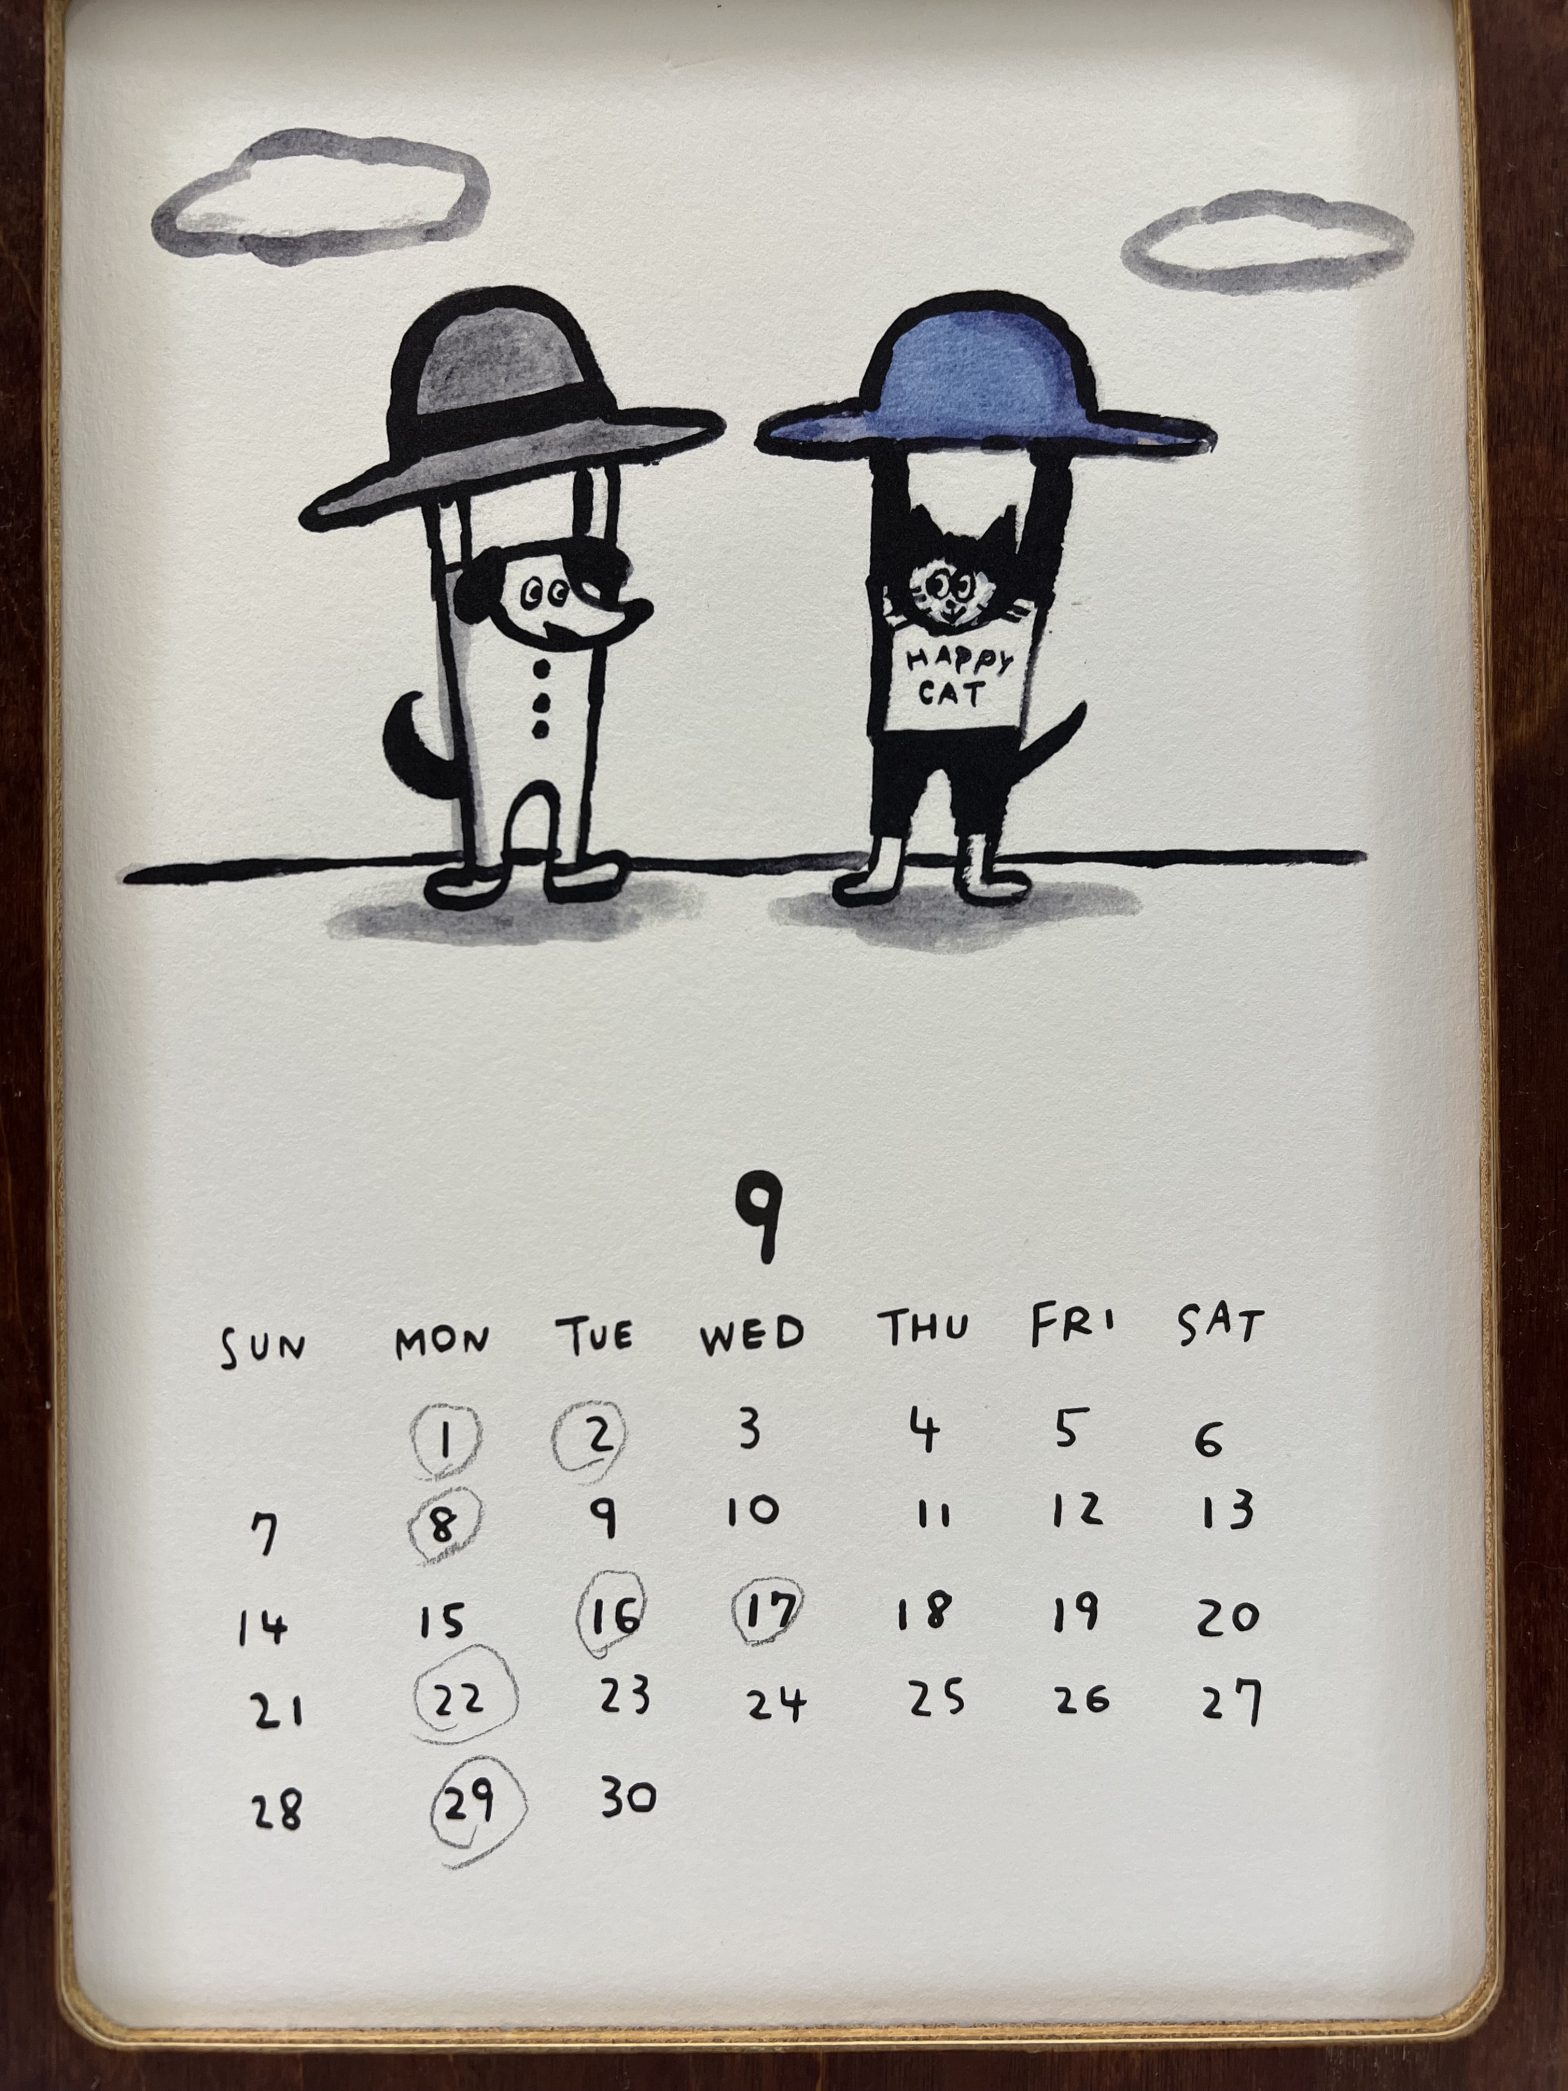 HAPPY
CAT
9
SUN MON TUE WED THU FRI SAT
1 2 3 4 5 6
7 8 9 10 11 12 13
14 15 16 17 18 19 20
21 22 23 24 25 26 27
28 29 30